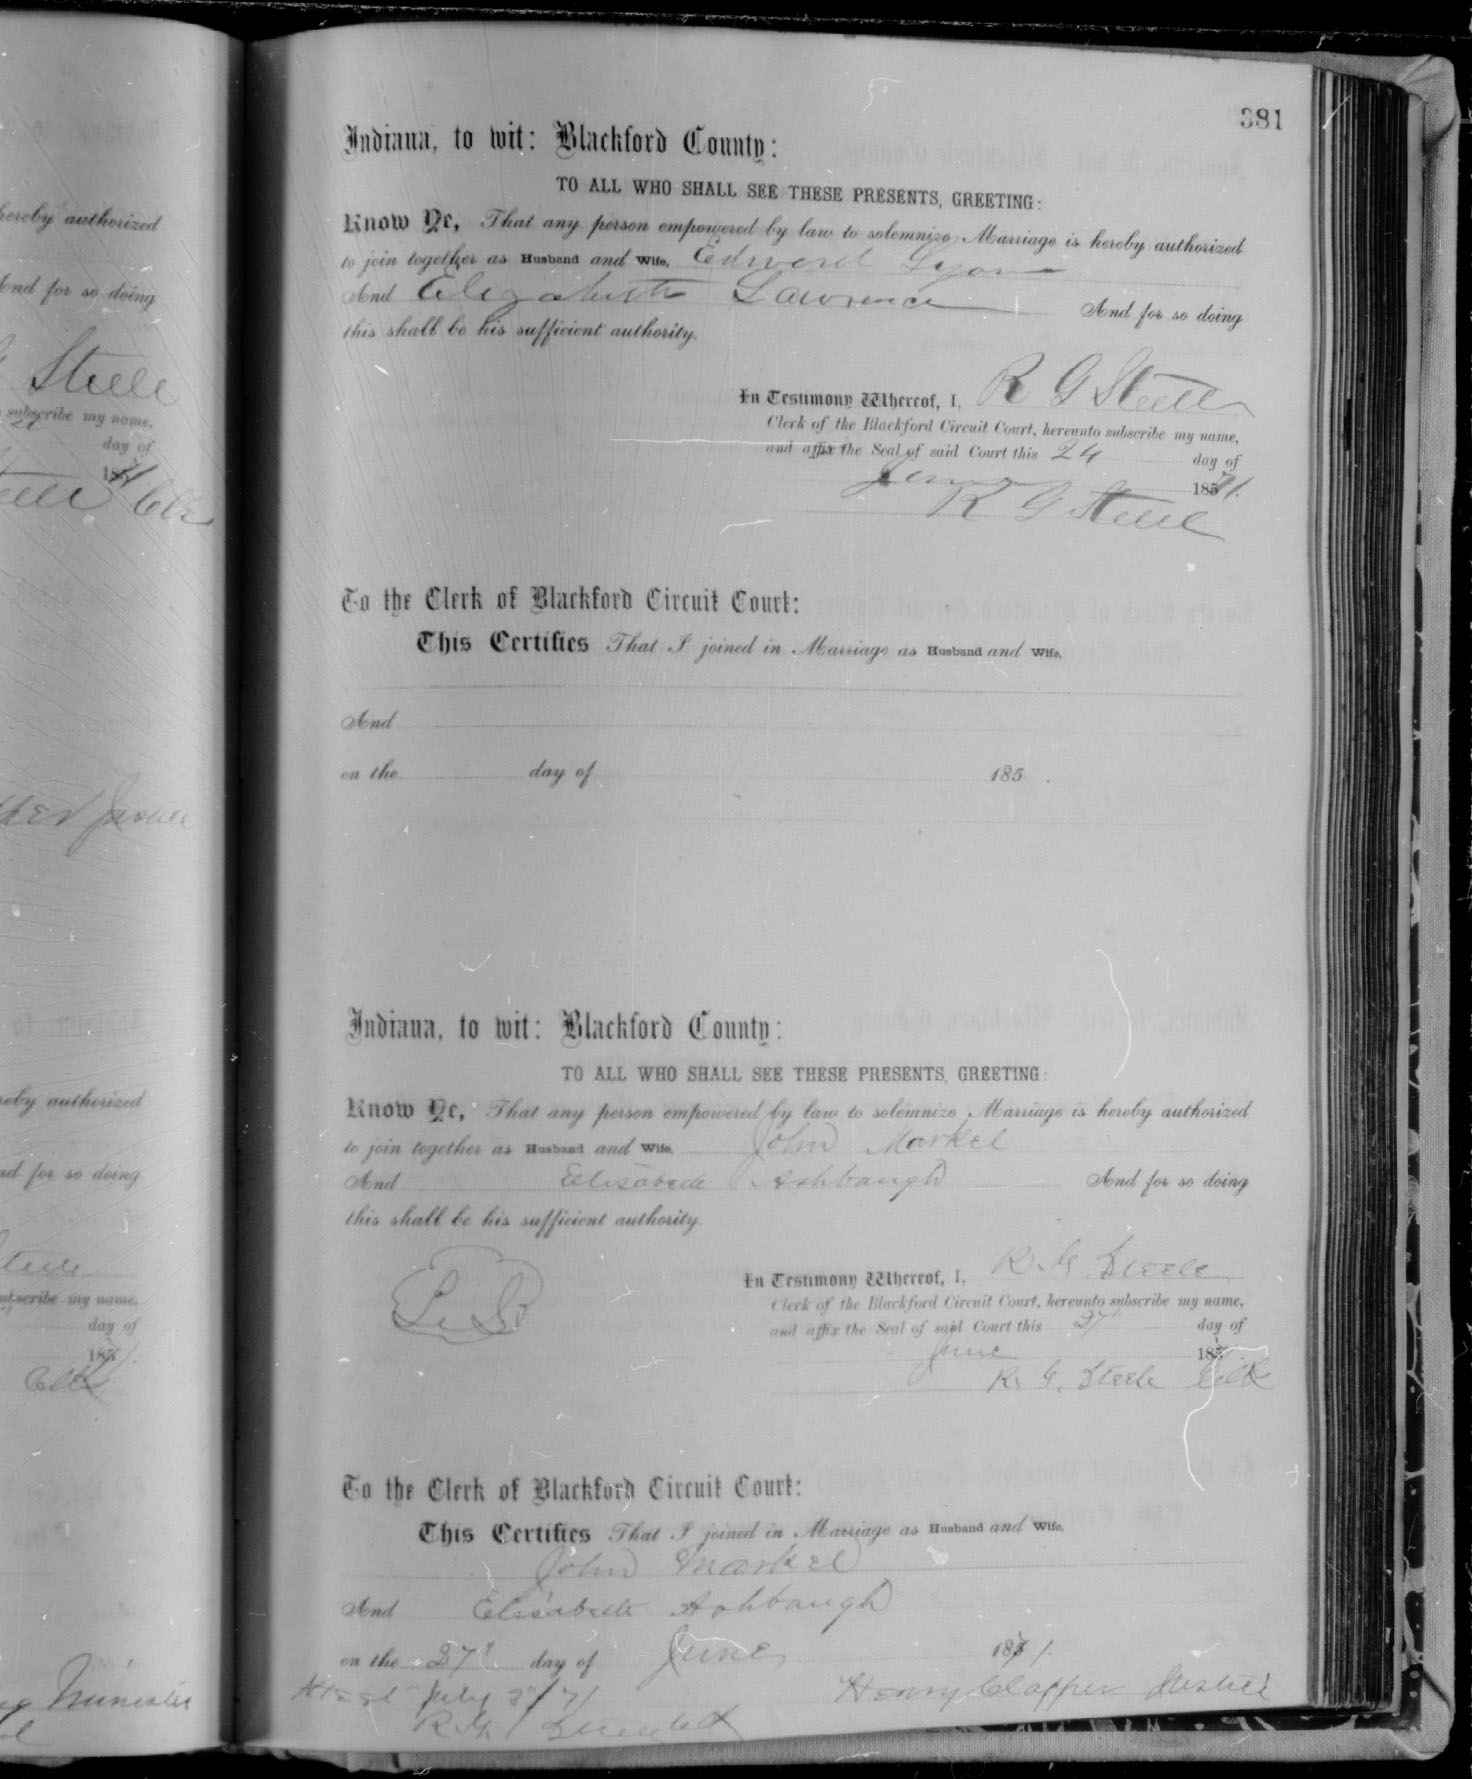 hereby authorized
And for so doing
Steele
subscribe my name,
day of
185
Clk
reby authorized
nd for so doing
subscribe my name,
day of
185
Clk
Minister
381
Indiana, to wit: Blackford County:
TO ALL WHO SHALL SEE THESE PRESENTS, GREETING:
Know Ye, That any person empowered by law to solemnize Marriage is hereby authorized
to join together as Husband and Wife, Edward Lyons
And Elizabeth Lawrence And for so doing
this shall be his sufficient authority.
In Testimony Whereof, I, R G Steele
Clerk of the Blackford Circuit Court, hereunto subscribe my name,
and affix the Seal of said Court this 24 day of
June 1871.
R G Steele
To the Clerk of Blackford Circuit Court:
This Certifies That I joined in Marriage as Husband and Wife,
And
on the day of 185 .
Indiana, to wit: Blackford County:
TO ALL WHO SHALL SEE THESE PRESENTS, GREETING:
Know Ye, That any person empowered by law to solemnize Marriage is hereby authorized
to join together as Husband and Wife, John Markel
And Elisabeth Ashbaugh And for so doing
this shall be his sufficient authority.
L. S.
In Testimony Whereof, I, R. G. Steele
Clerk of the Blackford Circuit Court, hereunto subscribe my name,
and affix the Seal of said Court this 27 day of
June 187
R. G. Steele Clk
To the Clerk of Blackford Circuit Court:
This Certifies That I joined in Marriage as Husband and Wife,
John Markel
And Elisabeth Ashbaugh
on the 27" day of June 1871.
Attest July 3"/71 Henry Clapper Justice
R. G. Steele Clk